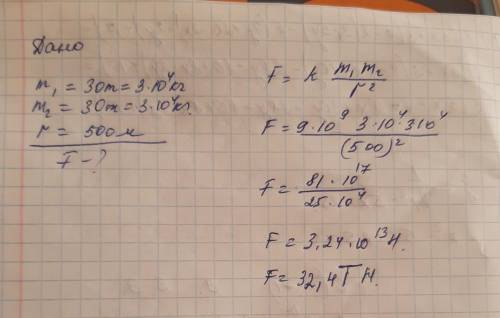 Дано
m₁ = 30т = 3·10⁴кг
m₂ = 30т = 3·10⁴кг.
r = 500м
F - ?
F = k m₁ m₂ / r²
F = 9·10⁹ 3·10⁴ 3·10⁴ / (500)²
F = 81·10¹⁷ / 25·10⁴
F = 3,24·10¹³Н.
F = 32,4ТН.